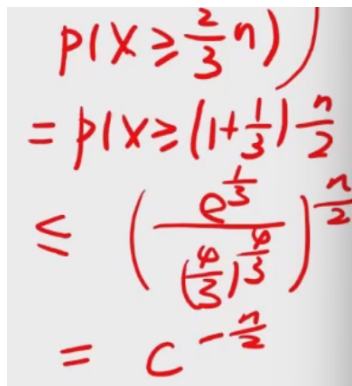 p(X ≥ 2/3 n))
= p(X ≥ (1+1/3) n/2
≤ (e^{1/3} / (4/3)^{4/3})^{n/2}
= c^{-n/2}